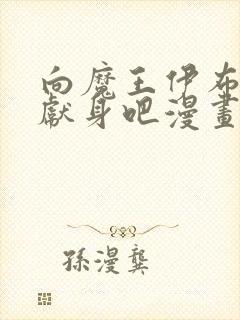 向魔王伊布
獻身吧漫畫
孫漫龔